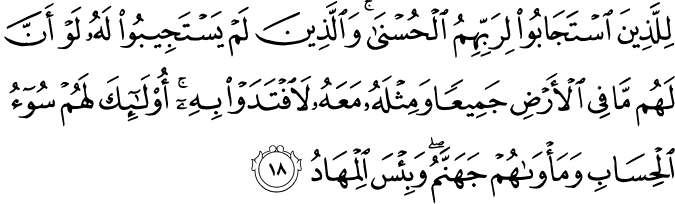 لِلَّذِينَ ٱسْتَجَابُوا۟ لِرَبِّهِمُ ٱلْحُسْنَىٰ ۚ وَٱلَّذِينَ لَمْ يَسْتَجِيبُوا۟ لَهُۥ لَوْ أَنَّ
لَهُم مَّا فِى ٱلْأَرْضِ جَمِيعًا وَمِثْلَهُۥ مَعَهُۥ لَٱفْتَدَوْا۟ بِهِۦٓ ۚ أُو۟لَـٰٓئِكَ لَهُمْ سُوٓءُ
ٱلْحِسَابِ وَمَأْوَىٰهُمْ جَهَنَّمُ ۖ وَبِئْسَ ٱلْمِهَادُ ١٨